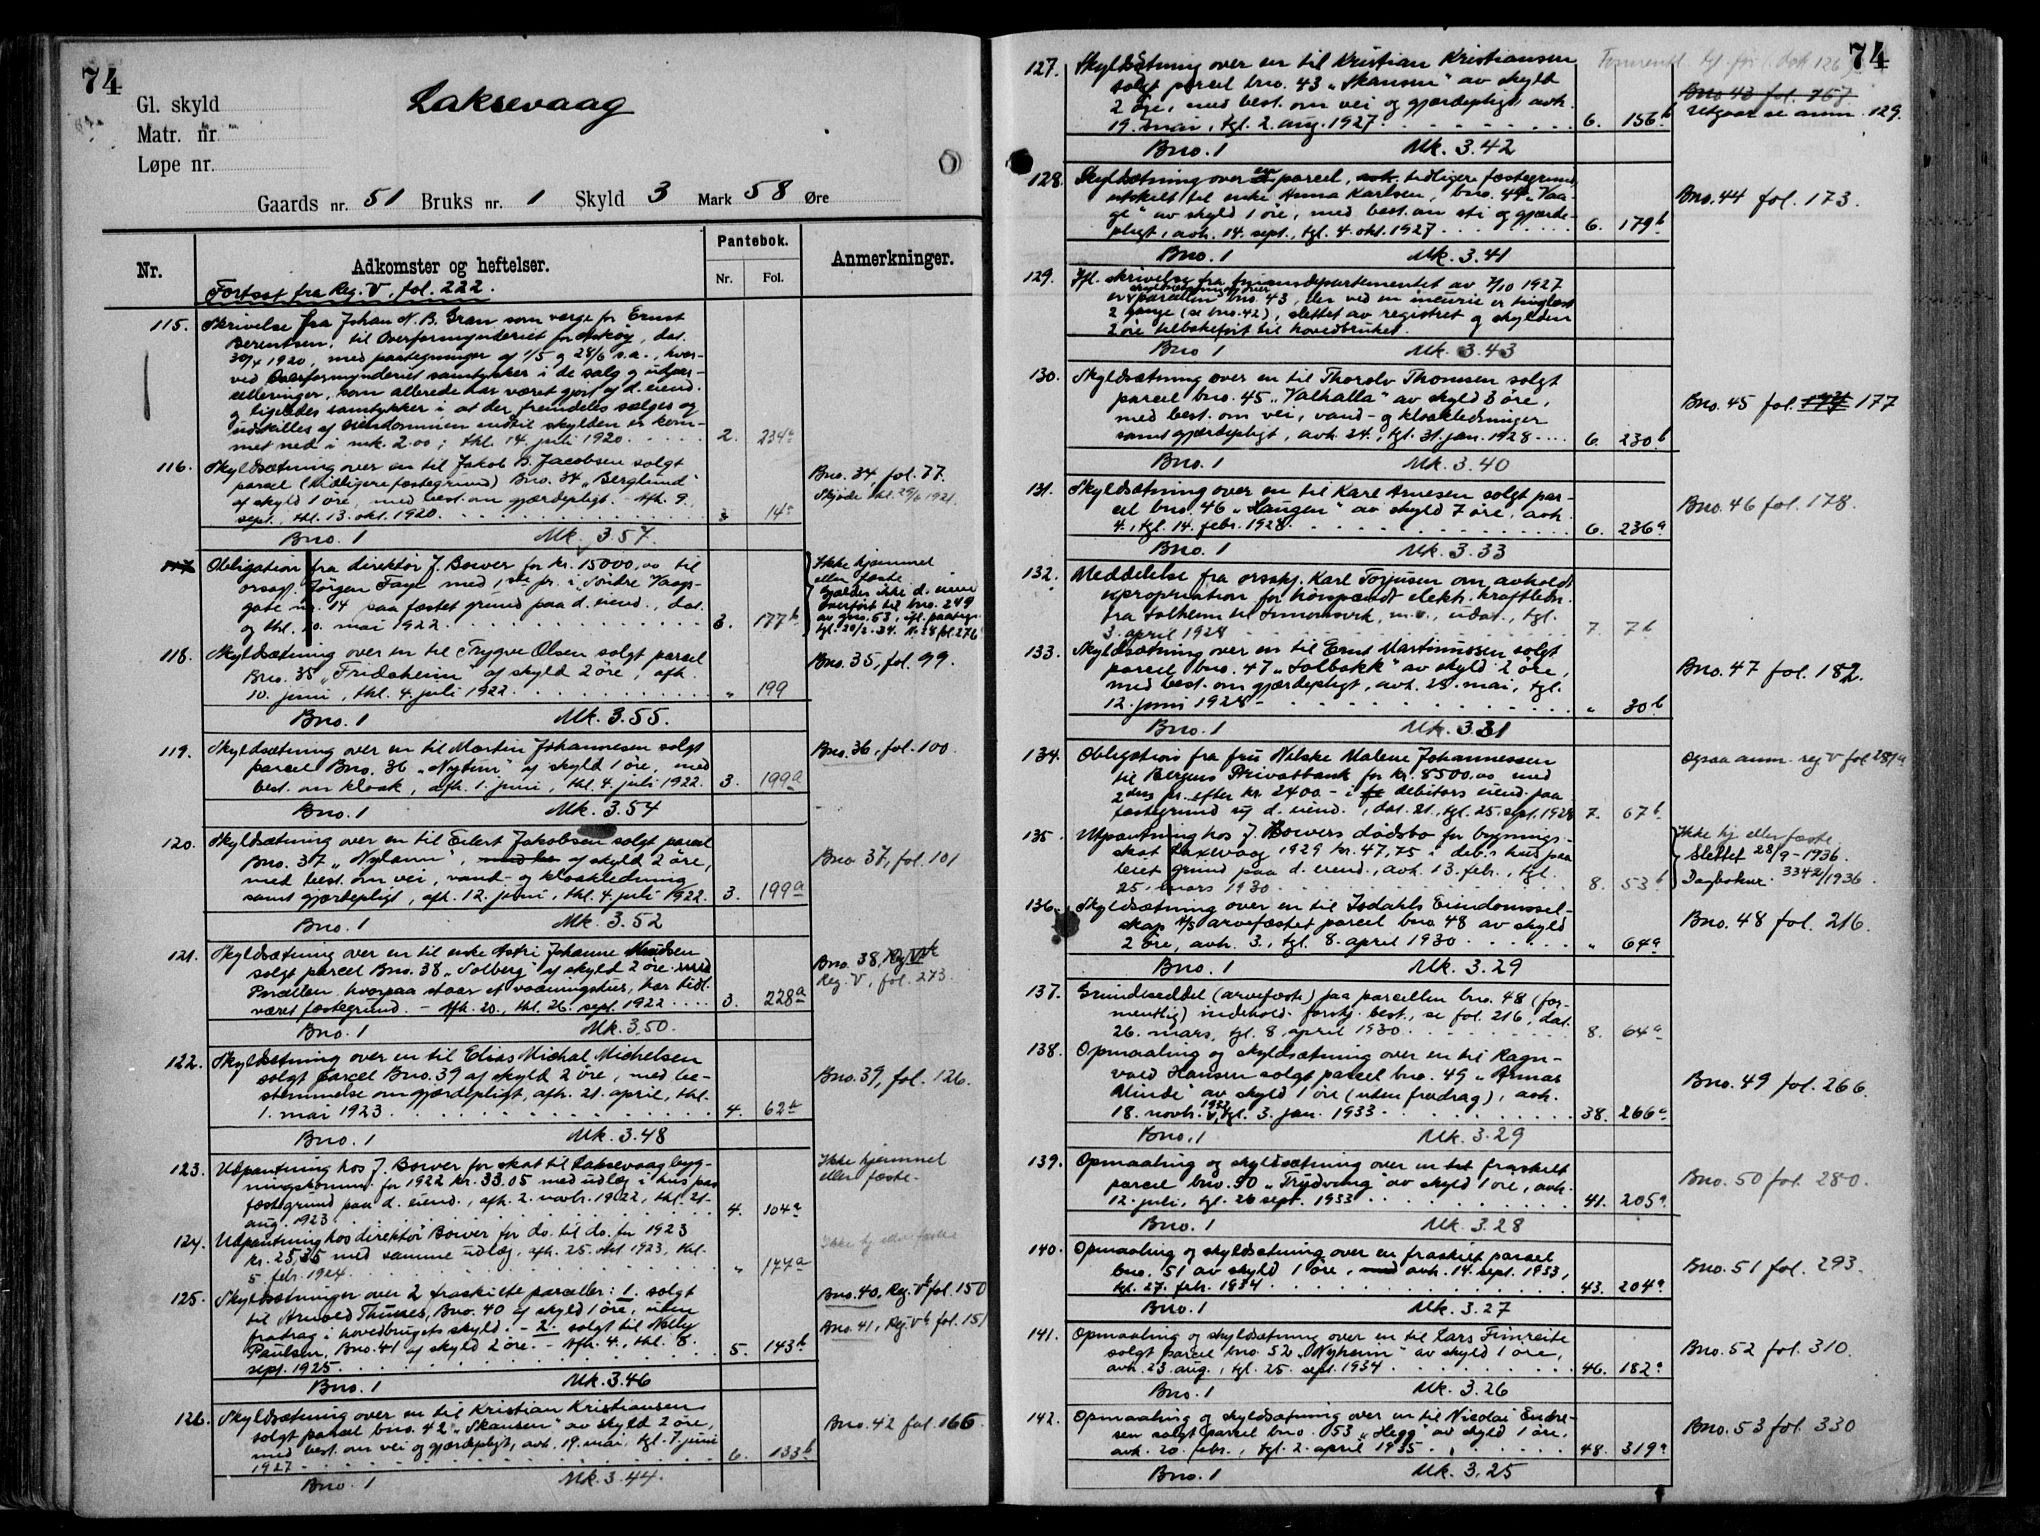 74
Gl. skyld
Matr. nr
Løpe nr.
Laksevaag
Gaards nr. 51 Bruks nr. 1 Skyld 3 Mark 58 Øre
Nr.
Adkomster og heftelser.
Pantebok.
Nr. Fol.
Anmerkninger.
Fortsat fra Reg. V, fol. 222.
115. Skrivelse fra Johan N. B. Gran som værge for Ernst
Berentsen, til Overformynderiet for Askøy, dat.
30/4 1920, med paategninger af 1/5 og 28/6 s.a., hvor-
ved Overformynderiet samtykker i de salg og udpar-
celleringer, som allerede har været gjort af d. eiend.
og ligeledes samtykker i at der fremdeles sælges og
udskilles af eiendommen indtil skylden er kom-
met ned i mk. 2.00; thl. 14. juli 1920. 2. 234a
116. Skyldsætning over en til Jakob B. Jacobsen solgt
parcel (tidligere fæstegrund) Bno. 34 „Berglund"
af skyld 1 øre, med best. om gjærdepligt. - Afh. 9.
sept., thl. 13. okt. 1920. 3 14a
Bno. 34, fol. 77.
Skjøde thl. 29/6 1921.
Bno. 1 Mk. 3.57.
117. Obligation fra direktør J. Bower for kr. 15000,00 til
orsagf. Jørgen Faye med 1ste pr. i Søndre Vaags-
gate no. 14 paa fæstet grund paa d. eiend., dat.
og thl. 10. mai 1922. 3. 177b
Ikke hjemmel
eller fæste
Gjælder ikke d. eiend
overført til bno. 249
av gno. 53, ifl. paategn.
tgl. 20/2-34. N. 8 fol. 276
118. Skyldsætning over en til Trygve Olsen solgt parcel
Bno. 35 „Fridsheim" af skyld 2 øre, afh.
10. juni, thl. 4. juli 1922. " 199
Bno. 35, fol. 99.
Bno. 1 Mk. 3.55.
119. Skyldsætning over en til Martin Johannesen solgt
parcel Bno. 36 „Nytun" af skyld 1 øre, med
best. om kloak, afh. 1. juni, thl. 4. juli 1922. 3. 199a
Bno. 36, fol. 100.
Bno. 1 Mk. 3.54
120. Skyldsætning over en til Eilert Jakobsen solgt parcel
Bno. 37 „Nylann", af skyld 2 øre,
med best. om vei, vand- og kloakledning
samt gjærdepligt, afh. 12. juni, thl. 4. juli 1922. 3. 199a
Bno 37, fol. 101
Bno. 1 Mk. 3.52
121. Skyldsætning over en til enke Astri Johanne Knudsen
solgt parcel Bno. 38 „Solberg" af skyld 2 øre.
Parcellen, hvorpaa staar et vaaningshus, har tidl.
været fæstegrund. - Afh. 20., thl. 26. sept. 1922 3. 228a
Bno. 38,
Reg. V, fol. 273.
Bno. 1 Mk. 3.50.
122. Skyldsætning over en til Elias Michal Michelsen
solgt parcel Bno. 39 af skyld 2 øre, med be-
stemmelse om gjærdepligt, afh. 21. april, thl.
1. mai 1923 4. 62a
Bno. 39, fol. 126.
Bno. 1 Mk. 3.48
123. Udpantning hos J. Bower for skat til Laksevaag byg-
ningskommn. for 1922 kr. 33.05 med udlæg i hus paa
fæstegrund paa d. eiend., afh. 2. novbr. 1922, thl. 21.
aug. 1923 4. 104a
Ikke hjemmel
eller fæste.
124. Udpantning hos direktør Bower for do. til do. for 1923
kr. 25,35 med samme udlæg, afh. 25. okt 1923, thl.
5. febr. 1924. " 177a
Ikke hj. eller fæste
125. Skyldsætninger over 2 fraskilte parceller: 1. solgt
til Arnold Thunes, Bno. 40 af skyld 1 øre, uten
fradrag i hovedbrugets skyld. - 2. solgt til Nelly
Paulsen, Bno. 41 af skyld 2 øre. - Afh. 4., thl. 8.
sept. 1925. 5. 143b
Bno. 40, Reg. Vb fol. 150
Bno. 41, Reg. Vb fol. 151
Bno. 1 Mk. 3.46
126. Skyldsætning over en til Kristian Kristiansen
solgt parcel bno. 42 „Skansen" av skyld 2 øre,
med best. om vei og gjærdepligt, avh. 19. mai, tgl. 7. juni
1927 6. 133b
Bno. 42 fol. 166.
Bno. 1 Mk. 3.44.
74
127. Skyldsætning over en til Kristian Kristiansen
solgt parcel bno. 43 „Skansen" av skyld
2 øre, med best. om vei og gjærdepligt, avh.
19. mai, tgl. 2. aug. 1927 6. 156b
Bno 43 fol. 767
Utgaar se anm. 129.
Bno. 1 Mk. 3.42
128. Skyldsætning over en parcel, tidligere fæstegrund,
utskilt til enke Anna Karlsen, bno. 44 „Vaa-
ge" av skyld 1 øre, med best. om sti og gjærde-
pligt, avh. 14. sept., tgl. 4. okt. 1927. 6. 179b
Bno. 44 fol. 173.
Bno. 1 Mk. 3.41
129. Ifl. skrivelse fra finansdepartementet av 7/10 1927
er skyldsætning over parcellen bno. 43, der ved en incurie er tinglæst
2 gange (se bno. 42), slettet av registret og skylden
2 øre tilbakeført til hovedbruket.
Bno 1 Mk. 3.43
130. Skyldsætning over en til Thorolv Thomsen solgt
parcel bno. 45 „Valhalla" av skyld 3 øre,
med best. om vei, vand- og kloakledninger
samt gjærdepligt, avh. 24., tgl. 31. jan. 1928 6. 230b
Bno. 45 fol. 177
Bno. 1 Mk. 3.40
131. Skyldsætning over en til Karl Arnesen solgt par-
cel bno. 46 „Haugen" av skyld 7 øre, avh.
4., tgl. 14. febr. 1928 6. 236a
Bno. 46 fol. 178.
Bno. 1 Mk. 3.33
132. Meddelelse fra orsskj. Karl Torjusen om avholdt
expropriation for høispændt elektr. kraftledn.
fra Solheim til Simonsvik, m.v., udat., tgl.
3. april 1928 7. 7b
133. Skyldsætning over en til Ernst Martinussen solgt
parcel bno. 47 „Solbakk" av skyld 2 øre,
med best. om gjærdepligt, avh. 28. mai, tgl.
12. juni 1928 " 30b
Bno. 47 fol. 182.
Bno. 1 Mk. 3.31
134. Obligation fra fru Nilske Malene Johannessen
til Bergens Privatbank for kr. 8500,00 med
2den pr. efter kr. 2400.- i debitors eiend. paa
fæstegrund af d. eiend., dat. 21., tgl. 25. sept. 1928 7. 67b
Ogsaa anm. reg V fol 281a
135. Utpantning hos J. Bowers dødsbo for bygnings-
skat Laxevaag 1929 kr. 47,75 i deb.s hus paa
leiet grund paa d. eiend., avh. 13. febr., tgl.
25. mars 1930 8. 53b
Ikke hj eller fæste
Slettet 28/9-1936.
Dagboknr. 3342/1936.
136. Skyldsætning over en til Isdahls Eiendomssel-
skap A/S arvefæstet parcel bno. 48 av skyld
2 øre, avh. 3., tgl. 8. april 1930 " 64a
Bno. 48 fol. 216.
Bno. 1 Mk. 3.29
137. Grundseddel (arvefæste) paa parcellen bno. 48 (for-
mentlig) indehold. forskj. best., se fol. 216, dat.
26. mars, tgl. 8. april 1930 8. 64a
138. Opmaaling og skyldsætning over en til Ragn-
vald Hansen solgt parcel bno. 49 „Armas
Minde" av skyld 1 øre (uten fradrag), avh.
18. novbr. 1932, tgl. 3. jan. 1933 38. 266a
Bno. 49 fol. 266.
Bno. 1 Mk. 3.29
139. Opmaaling og skyldsætning over en fraskilt
parcel bno. 50 „Frydvang" av skyld 1 øre, avh.
12. juli, tgl. 26 sept. 1933 41. 205a
Bno. 50 fol. 280.
Bno. 1 Mk. 3.28
140. Opmaaling og skyldsætning over en fraskilt parcel
bno. 51 av skyld 1 øre, avh. 14. sept. 1933,
tgl. 27. febr. 1934 43. 204a
Bno. 51 fol. 293.
Bno. 1 Mk. 3.27
141. Opmaaling og skyldsætning over en til Lars Finreite
solgt parcel bno 52 „Nyheim" av skyld 1 øre,
avh. 23 aug., tgl. 25. sept. 1934 46. 182a
Bno. 52 fol. 310.
Bno. 1 Mk. 3.26
142. Opmaaling og skyldsætning over en til Nicolai Endre-
sen solgt parcel bno. 53 „Hegg" av skyld 1 øre,
avh. 20. febr., tgl. 2. april 1935 48. 319a
Bno. 53 fol. 330
Bno. 1 Mk. 3.25